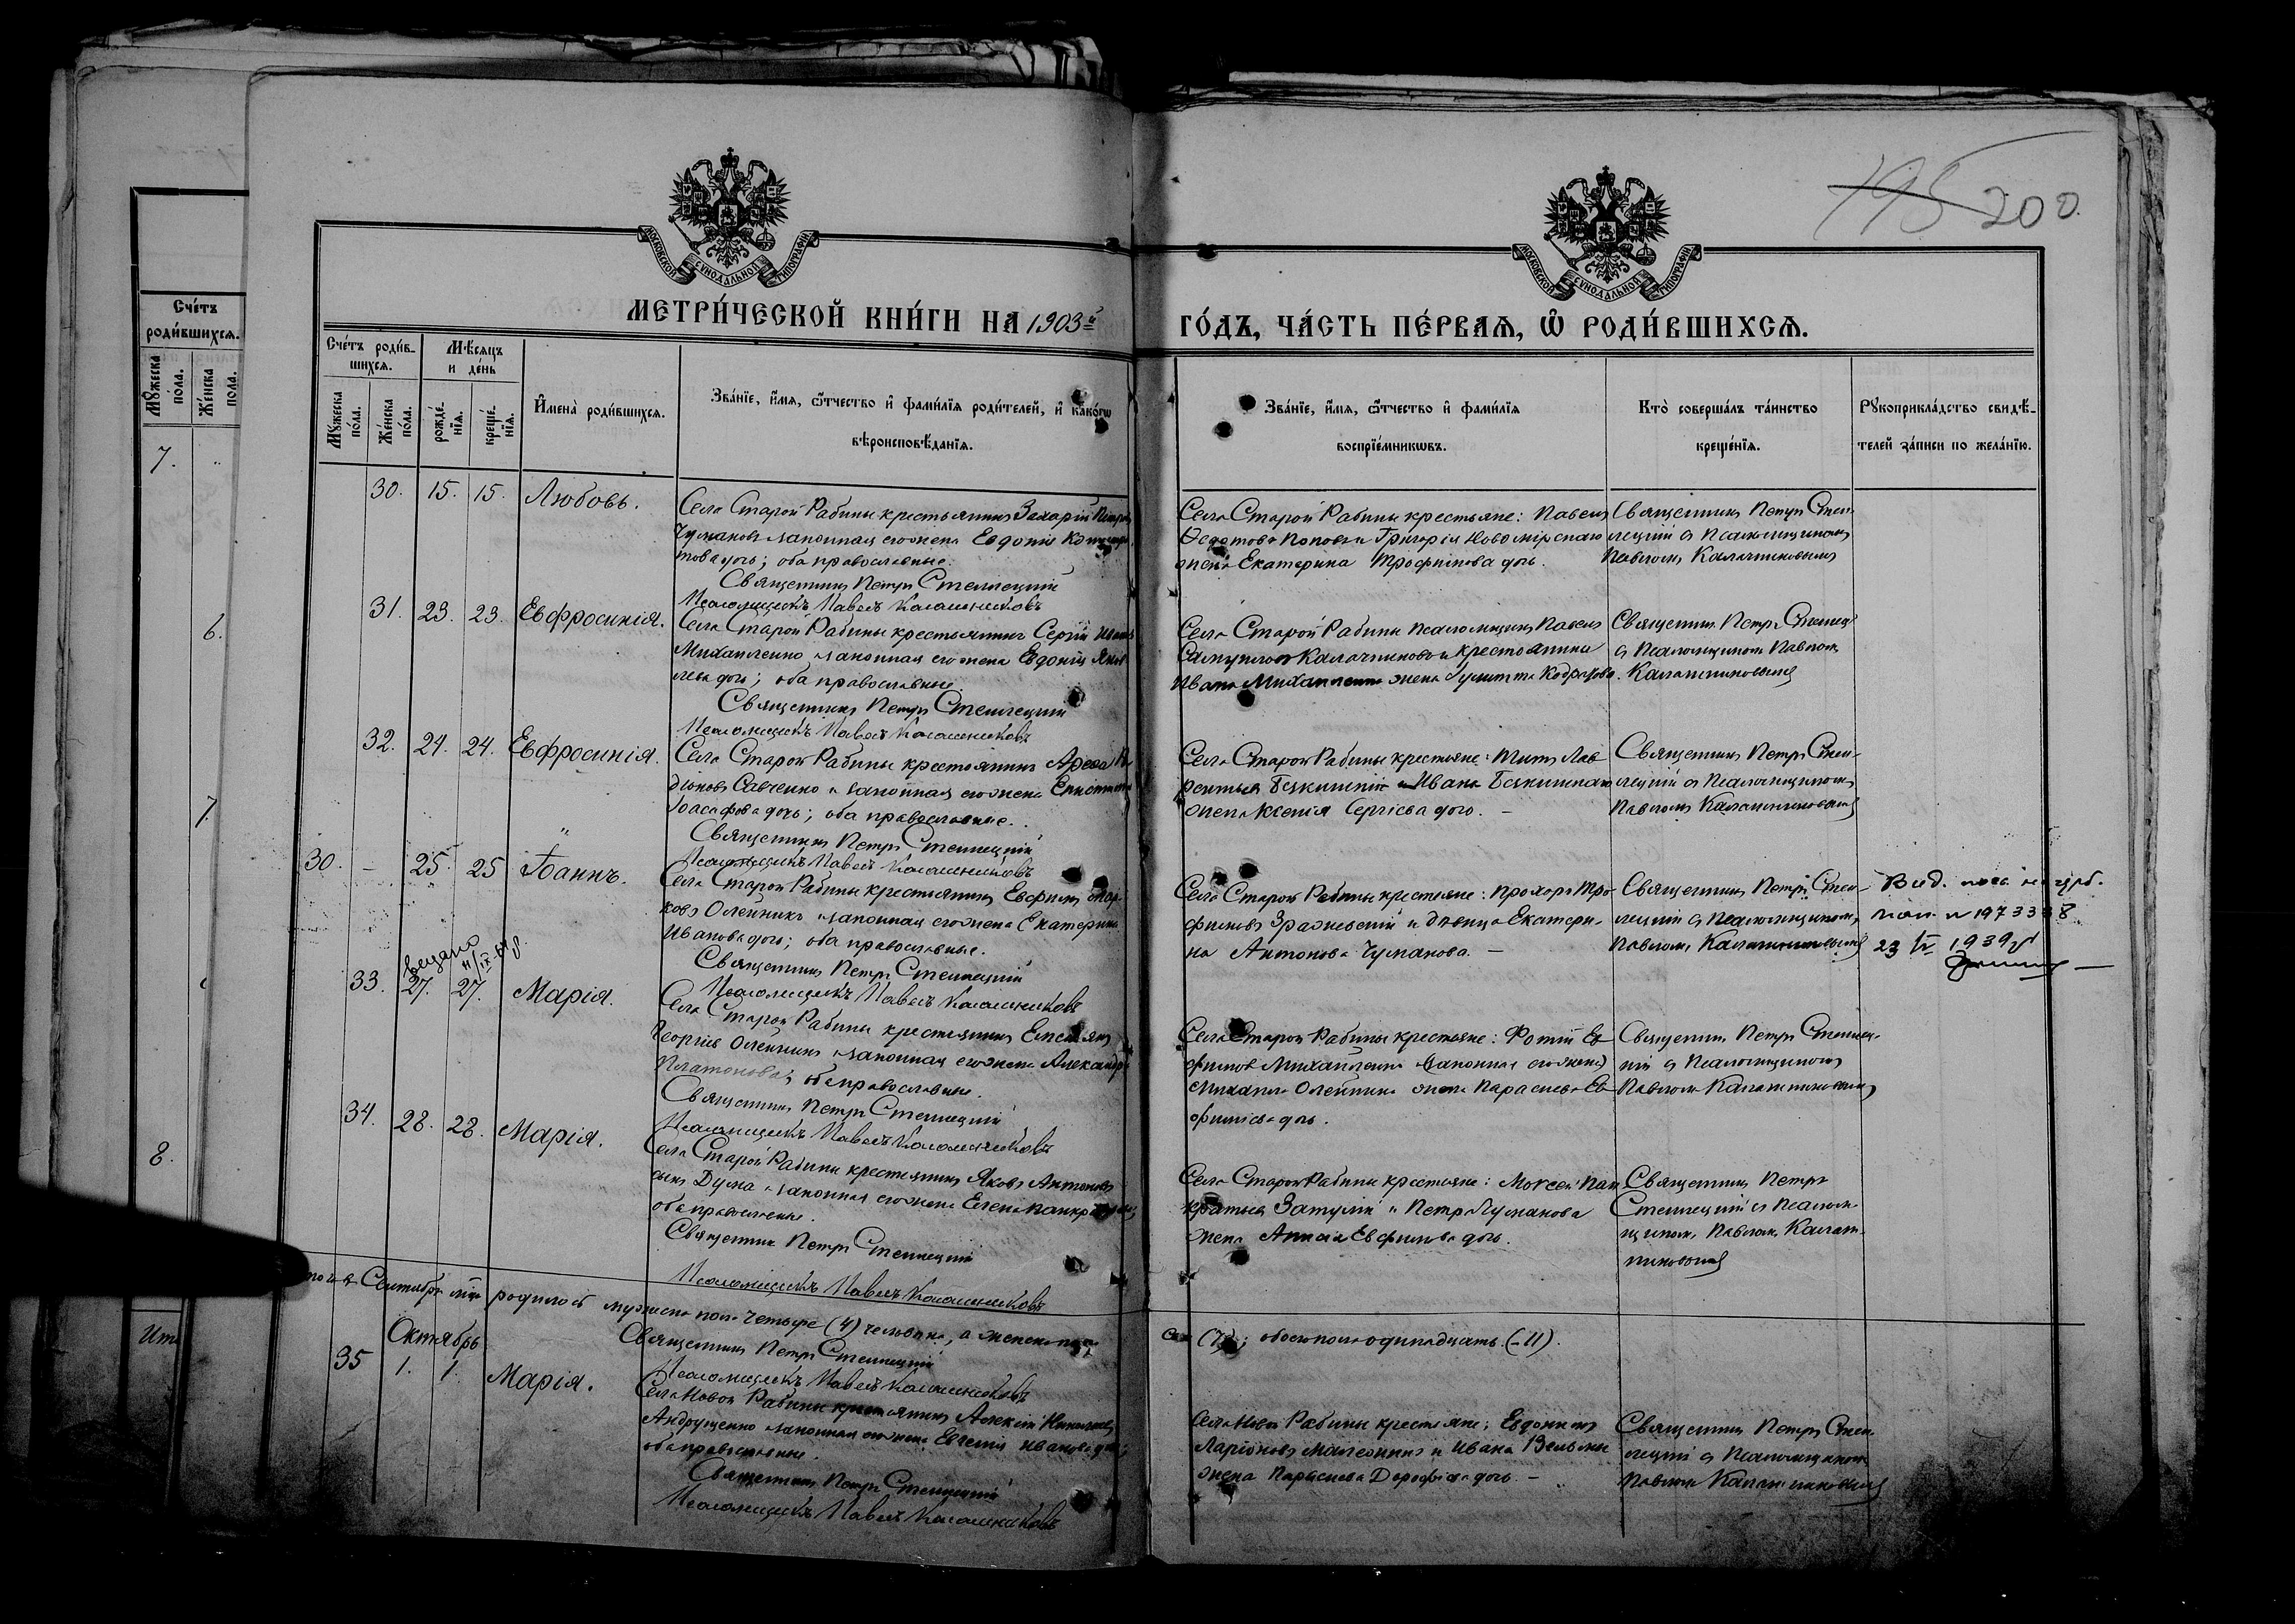 195 200.
МОСКОВСКОЙ СУНОДАЛЬНОЙ ТИПОГРАФІИ
МОСКОВСКОЙ СУНОДАЛЬНОЙ ТИПОГРАФІИ
МЕТРИ́ЧЕСКОЙ КНИ́ГИ НА 1903й
ГО́ДЪ, ЧА́СТЬ ПЕ́РВАЯ, Ѡ РОДИ́ВШИХСЯ.
Сче́тъ роди́вшихся.
Мꙋжеска пола.
Же́нска пола.
7.
6.
7.
8.
Сче́тъ роди́в-
шихся.
Мꙋжеска по́ла.
Же́нска по́ла.
Мѣсяцъ и де́нь
рожде́-нїя.
креще́-нїя.
Имена̀ роди́вшихся.
Зва́нїе, и́мя, ѿчество и фами́лїя роди́телей, и како́гѡ
вѣроисповѣданїя.
Зва́нїе, и́мя, ѿчество и фами́лїя
воспрїе́мникѡвъ.
Кто̀ соверша́лъ та́инство
креще́нїя.
Рꙋкоприкла́дство свидѣ́-
телей за́писи по жела́нїю.
30. 15. 15. Любовь.
Села Старой Рабины крестьянинъ Захарій
Чумаковъ и законная его жена Евдокія
това дочь; оба православные.
Священникъ Петръ Стеллецкій
Псаломщикъ Павелъ Калашниковъ
Села Старой Рабины крестьяне: Павелъ
Ѳедотовъ Поповъ и Григорія Новомірскаго
жена Екатерина Трофимова дочь.
Священникъ Петръ Стел-
лецкій съ Псаломщикомъ
Павломъ Калашниковымъ
31. 23. 23. Евфросинія.
Села Старой Рабины крестьянинъ Сергій Ивановъ
Михайленко и законная его жена Евдокія Яков
лева дочь; оба православные.
Священникъ Петръ Стеллецкій
Псаломщикъ Павелъ Калашниковъ
Села Старой Рабины псаломщикъ Павелъ
Самуиловъ Калашниковъ и крестьянина
Ивана Михайленка жена
Священникъ Петръ Стеллец
съ Псаломщикомъ Павломъ
Калашниковымъ
32. 24. 24. Евфросинія.
Села Старой Рабины крестьянинъ
діоновъ Савченко и законная его жена
Іоасафова дочь; оба православные.
Священникъ Петръ Стеллецкій
Псаломщикъ Павелъ Калашниковъ
Села Старой Рабины крестьяне: Титъ Лав-
рентьевъ и Ивана
жена Ксенія Сергіева дочь. –
Священникъ Петръ Стел-
лецкій съ Псаломщикомъ
Павломъ Калашниковымъ
30. – 25. 25 Іоаннъ.
Села Старой Рабины крестьянинъ Евфимій Мар-
ковъ Олейникъ и законная его жена Екатерина
Иванова дочь; оба православные.
Священникъ Петръ Стеллецкій
Псаломщикъ Павелъ Калашниковъ
Села Старой Рабины крестьяне: Прохоръ Тро-
фимовъ Зражевскій и дѣвица Екатери-
на Антонова Чумакова. –
Священникъ Петръ Стел-
лецкій съ Псаломщикомъ
Павломъ Калашниковымъ
Вид.
1973338
23 1939 р
33. 27. 27. Марія.
Села Старой Рабины крестьянинъ Емельянъ
Георгіевъ Олейникъ и законная его жена Александра
Платонова; оба православные.
Священникъ Петръ Стеллецкій
Псаломщикъ Павелъ Калашниковъ
Села Старой Рабины крестьяне: Фотій Ев-
фимовъ Михайленко (законная его жена)
Михаила Олейника жена Параскева Ев-
фиміева дочь.
Священникъ Петръ Стеллец-
кій съ Псаломщикомъ
Павломъ Калашниковымъ
34. 28. 28. Марія.
Села Старой Рабины крестьянинъ Яковъ Антоновъ
сынъ Дума и законная его жена Елена Панкратьева;
оба православные.
Священникъ Петръ Стеллецкій
Псаломщикъ Павелъ Калашниковъ
Села Старой Рабины крестьяне: Мойсей Пан-
кратьевъ Затулій и Петра Чумакова
жена Анна Евфимова дочь.
Священникъ Петръ
Стеллецкій съ Псалом-
щикомъ Павломъ Калаш-
никовымъ
Итого въ Сентябрѣ м-цѣ родилось мужска пола четыре (4) человѣка, а женска пола
семь (7); обоего пола одинадцать (11).
Священникъ Петръ Стеллецкій
Псаломщикъ Павелъ Калашниковъ
Октябрь
35 1. 1. Марія.
Села Новой Рабины крестьянинъ Алексій
Андрущенко и законная его жена Евгенія Иванова дочь;
оба православные.
Священникъ Петръ Стеллецкій
Псаломщикъ Павелъ Калашниковъ
Села Новой Рабины крестьяне: Евдокимъ
Ларіоновъ и Ивана
жена Параскева Дорофіева дочь. –
Священникъ Петръ Стел-
лецкій съ Псаломщикомъ
Павломъ Калашниковымъ